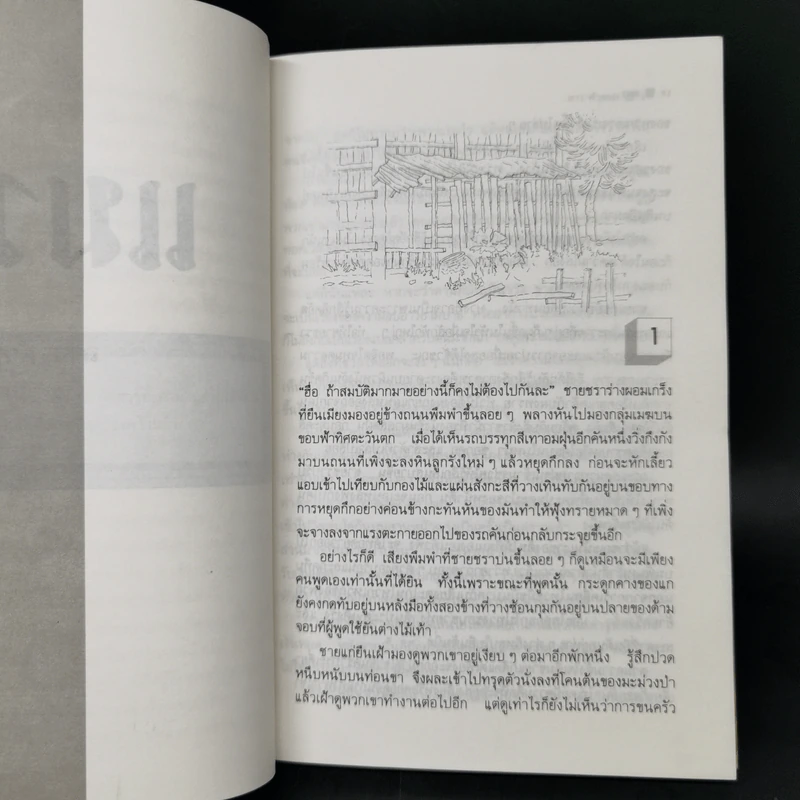 1
“ฮื่อ ถ้าสมบัติมากมายอย่างนี้ก็คงไม่ต้องไปกันละ” ชายชราร่างผอมเกร็ง
ที่ยืนเมียงมองอยู่ข้างถนนพึมพำขึ้นลอย ๆ พลางหันไปมองกลุ่มเมฆบน
ขอบฟ้าทิศตะวันตก เมื่อได้เห็นรถบรรทุกสีเทาอมฝุ่นอีกคันหนึ่งวิ่งกึงกัง
มาบนถนนที่เพิ่งจะลงหินลูกรังใหม่ ๆ แล้วหยุดกึกลง ก่อนจะหักเลี้ยว
แอบเข้าไปเทียบกับกองไม้และแผ่นสังกะสีที่วางเทินทับกันอยู่บนขอบทาง
การหยุดกึกอย่างค่อนข้างกะทันหันของมันทำให้ฟุ้งทรายหมาด ๆ ที่เพิ่ง
จะจางลงจากแรงตะกายออกไปของรถคันก่อนกลับกระจุยขึ้นอีก
อย่างไรก็ดี เสียงพึมพำที่ชายชราบ่นขึ้นลอย ๆ ก็ดูเหมือนจะมีเพียง
คนพูดเองเท่านั้นที่ได้ยิน ทั้งนี้เพราะขณะที่พูดนั้น กระดูกคางของแก
ยังคงกดทับอยู่บนหลังมือทั้งสองข้างที่วางซ้อนกุมกันอยู่บนปลายของด้าม
จอบที่ผู้พูดใช้ยันต่างไม้เท้า
ชายแก่ยืนเฝ้ามองดูพวกเขาอยู่เงียบ ๆ ต่อมาอีกพักหนึ่ง รู้สึกปวด
หนึบหนับบนท่อนขา จึงผละเข้าไปทรุดตัวนั่งลงที่โคนต้นของมะม่วงป่า
แล้วเฝ้าดูพวกเขาทำงานต่อไปอีก แต่ดูเท่าไรก็ยังไม่เห็นว่าการขนครัว